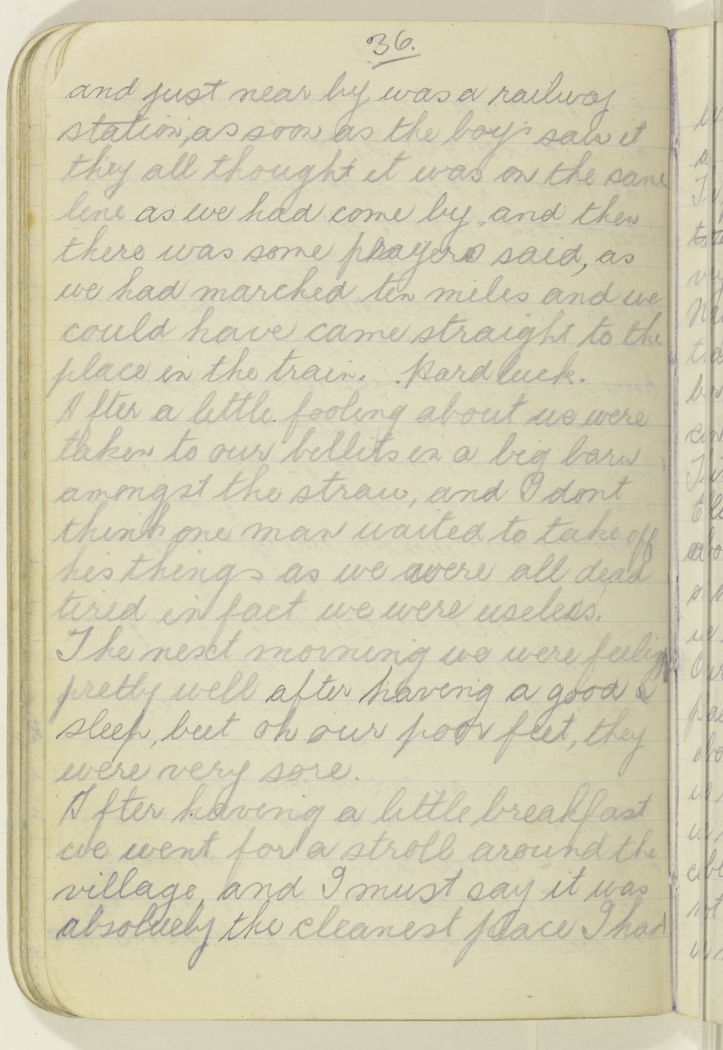 36.
and just near by was a railway
station, as soon as the boys saw it
they all thought it was on the same
line as we had come by, and then
there was some prayers said, as
we had marched ten miles and we
could have came straight to the
place in the train. Hard luck.
After a little fooling about we were
taken to our billits in a big barn
amongst the straw, and I dont
think one man waited to take off
his things as we were all dead
tired in fact we were useless.
The next morning we were feeling
pretty well after having a good
sleep, but oh our poor feet, they
were very sore.
After having a little breakfast
we went for a stroll around the
village, and I must say it was
absoluely the cleanest place I had